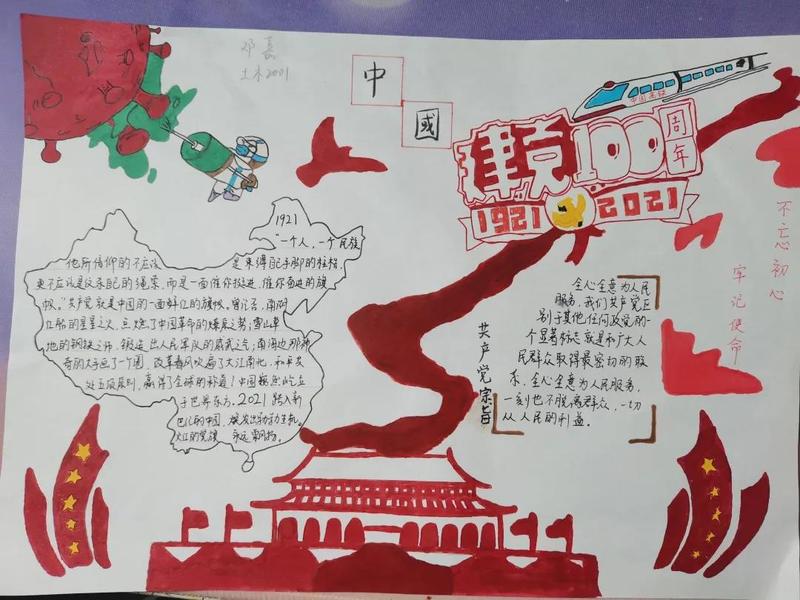 邓磊
土木2001
中
國
中国高铁
建党100周年
1921 2021
不忘初心
牢记使命
1921
“一个人，一个民族
他所信仰的不应该 是束缚自己手脚的桎梏
更不应该是
的绳索，而是一面催你投进，催你奋进的旗
帜。”共产党就是中国的一面鲜红的旗帜。曾记否，南湖
红船的星星之火，点燃了中国革命的燎原之势；雪山草
地的钢铁之师，锻造出人民军队的威武之气；南海边那神
奇的大手画了一个圈，改革春风吹遍了大江南北，和平共
处五项原则，赢得了全球的称道！中国
于世界东方。2021 踏入新
世纪的中国，焕发出勃勃生机。
永远
共产党宗旨
全心全意为人民
服务，我们共产党区
别于其他任何政党的一
个显著标志就是和广大人
民群众取得最密切的联
系，全心全意为人民服务，
一刻也不脱离群众，一切
从人民的利益。